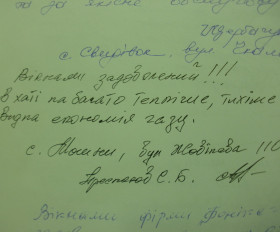 за якісне
с. вул.
Вікнами задоволений!!!
В хаті набагато тепліше, тихіше
видна економія газу.
с. Мошни, вул Жовтнева 110
Є. Б.
Вікнами фірми